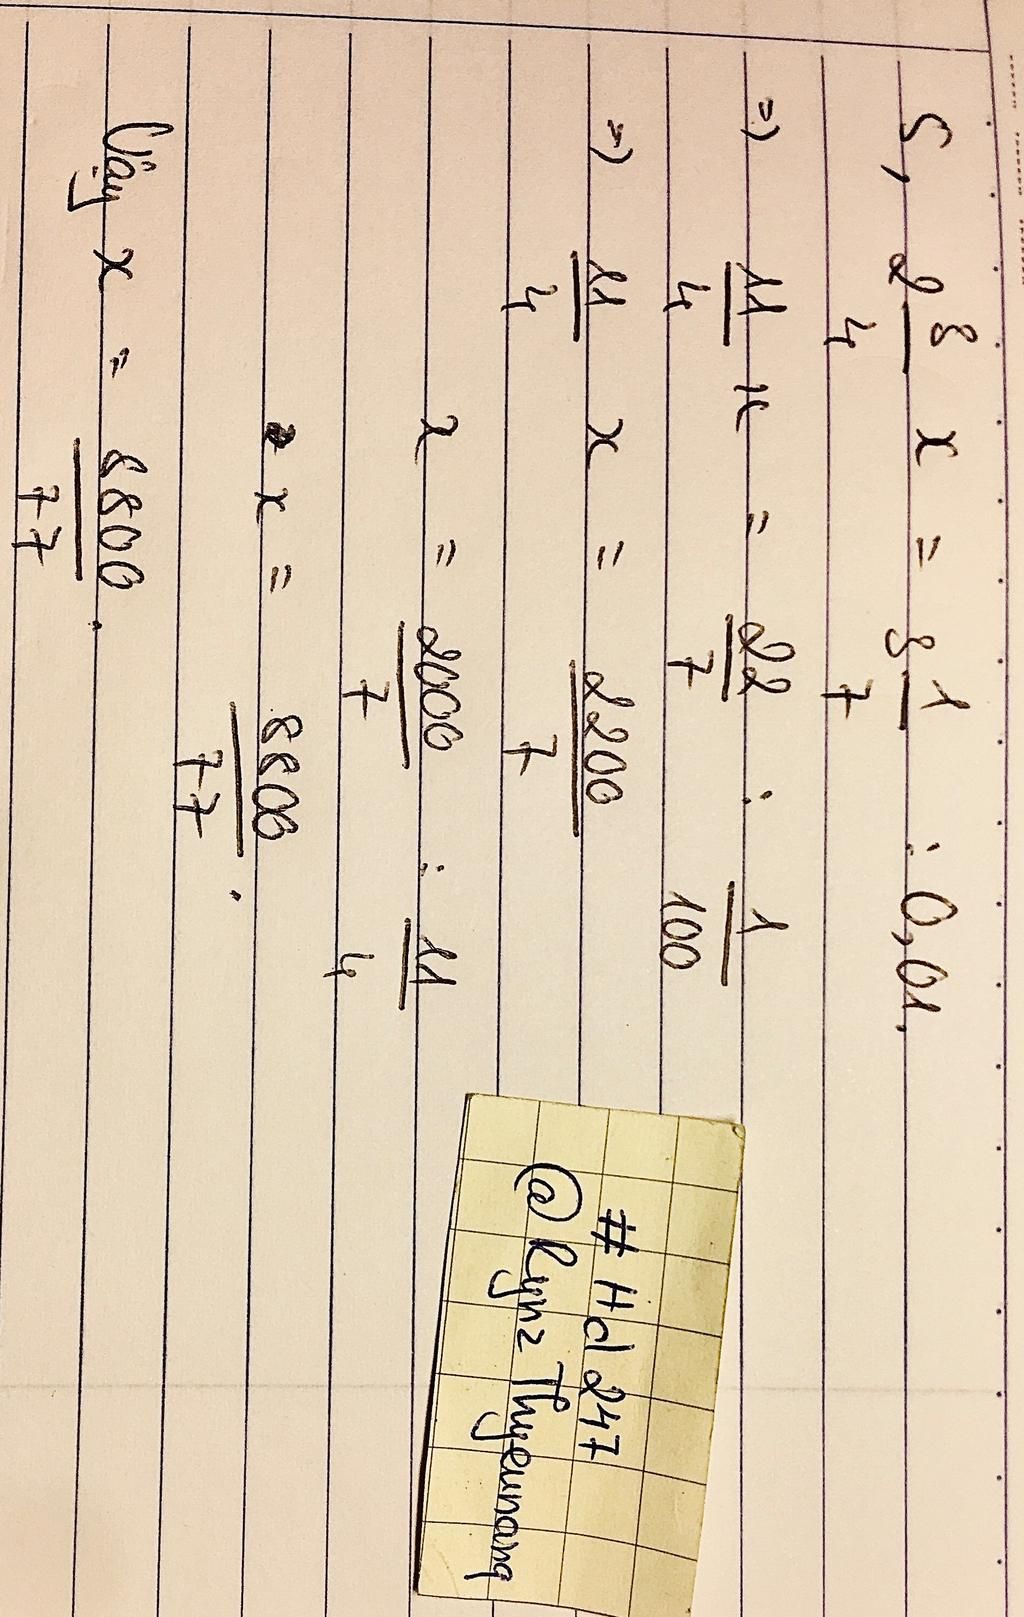 5, 2 3/4 x = 3 1/7 : 0,01.
=) 11/4 x = 22/7 : 1/100
=) 11/4 x = 2200/7
x = 2000/7 : 11/4
x = 8800/77.
Vậy x = 8800/77.
# Hd 247
@Rynz Thyeunang